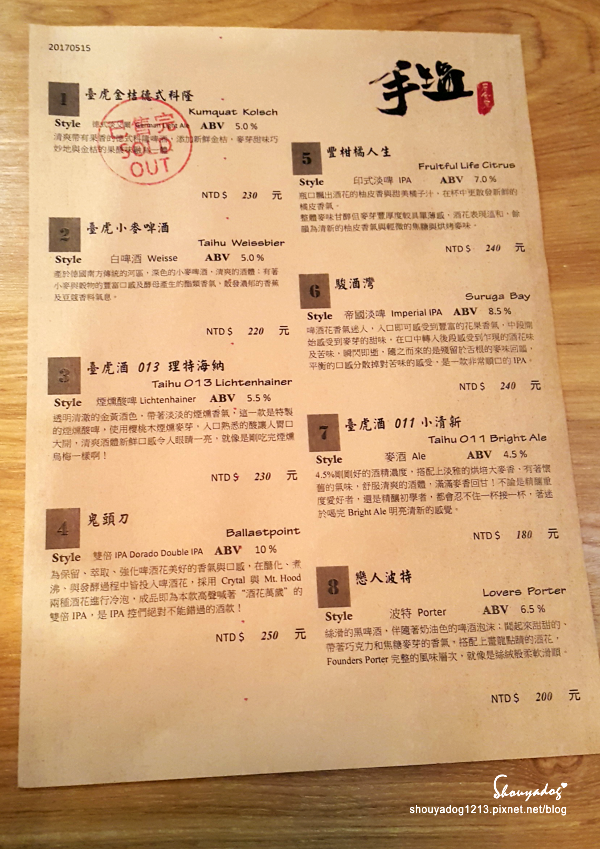 20170515
手溫
1
臺虎金桔德式科隆
Kumquat Kolsch
Style
ABV 5.0 %
已售完
SOLD
OUT
NTD $ 230 元
2
臺虎小麥啤酒
Taihu Weissbier
Style 白啤酒 Weisse ABV 5.0 %
產於德國南方傳統的河區，深色的小麥啤酒，清爽的酒體；有著
小麥與穀物的豐富口感及酵母產生的酯類香氣，散發濃郁的香蕉
及豆蔻香料氣息。
NTD $ 220 元
3
臺虎酒 013 理特海納
Taihu 013 Lichtenhainer
Style 煙燻酸啤 Lichtenhainer ABV 5.5 %
透明清澈的金黃酒色，帶著淡淡的煙燻香氣，這一款是特製
的煙燻酸啤，使用櫻桃木煙燻麥芽，入口熟悉的酸讓人胃口
大開，清爽酒體新鮮口感令人眼睛一亮，就像是剛吃完煙燻
烏梅一樣啊！
NTD $ 230 元
4
鬼頭刀
Ballastpoint
Style 雙倍 IPA Dorado Double IPA ABV 10 %
為保留、萃取、強化啤酒花美好的香氣與口感，在醣化、煮
沸、與發酵過程中皆投入啤酒花，採用 Crytal 與 Mt. Hood
兩種酒花進行冷泡，成品即為本款高聲喊著“酒花萬歲”的
雙倍 IPA，是 IPA 控們絕對不能錯過的酒款！
NTD $ 250 元
5
豐柑橘人生
Fruitful Life Citrus
Style 印式淡啤 IPA ABV 7.0 %
瓶口飄出酒花的柚皮香與甜美橘子汁，在杯中更散發新鮮的
橘皮香氣。
整體麥味甘醇但麥芽豐厚度較具單薄感，酒花表現溫和、餘
韻為清新的柚皮香氣與輕微的焦糖與烘烤麥味。
NTD $ 240 元
6
駿酒灣
Suruga Bay
Style 帝國淡啤 Imperial IPA ABV 8.5 %
啤酒花香氣迷人，入口即可感受到豐富的花果香氣，中段開
始感受到麥芽的甜味，在口中轉入後段感受到乍現的酒花味
及苦味，瞬間即逝，隨之而來的是殘留於舌根的麥味回甘，
平衡的口感分散掉對苦味的感受，是一款非常順口的 IPA。
NTD $ 240 元
7
臺虎酒 011 小清新
Taihu 011 Bright Ale
Style 麥酒 Ale ABV 4.5 %
4.5%剛剛好的酒精濃度，搭配上淡雅的烘培大麥香，有著懷
舊的氣味，舒服清爽的酒體，滿滿麥香回甘！不論是精釀重
度愛好者，還是精釀初學者，都會忍不住一杯接一杯，著迷
於喝完 Bright Ale 明亮清新的感覺。
NTD $ 180 元
8
戀人波特
Lovers Porter
Style 波特 Porter ABV 6.5 %
絲滑的黑啤酒，伴隨著奶油色的啤酒泡沫；聞起來甜甜的、
帶著巧克力和焦糖麥芽的香氣，搭配上畫龍點睛的酒花，
Founders Porter 完整的風味層次，就像是絲絨般柔軟滑順。
NTD $ 200 元
Shouyadog
shouyadog1213.pixnet.net/blog